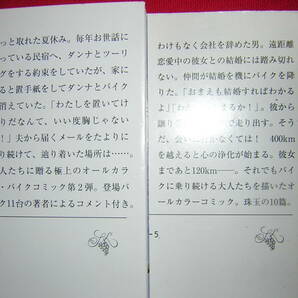 っと取れた夏休み。毎年お世話に
っている民宿へ、ダンナとツーリ
グをする約束をしていたが、家に
ると置手紙をしてダンナとバイク
消えていた。「わたしを置いてけ
りだなんて、いい度胸じゃない
！」夫から届くメールをたよりに
り続けて、辿り着いた場所は……。
人たちに贈る極上のオールカラ
・バイクコミック第２弾。登場バ
ク11台の著者によるコメント付き。
わけもなく会社を辞めた男。遠距離
恋愛中の彼女との結婚には踏み切れ
ない。仲間が結婚を機にバイクを降
りた。「おまえも結婚すればわかる
よ」「わ
るか！」。彼から
譲り
で走り出す。そうだ
、会い
う！ 400km
を越えると心の浄化が始まる。彼女
まであと120km――。それでもバイ
クに乗り続ける大人たちを描いたオ
ールカラーコミック。珠玉の10篇。
-5